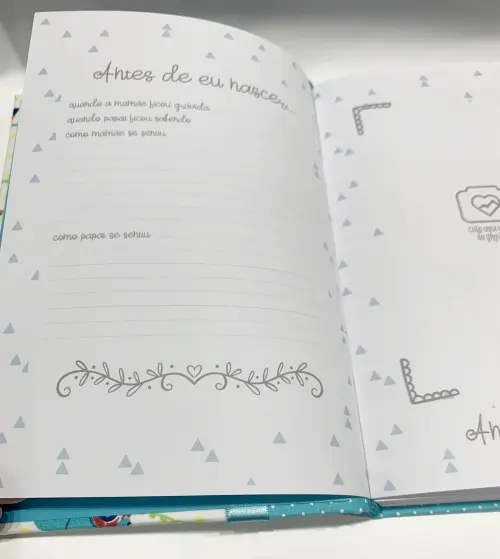 Antes de eu nascer...
quando a mamãe ficou grávida
quando papai ficou sabendo
como mamãe se sentiu
como papai se sentiu
cole aqui
An